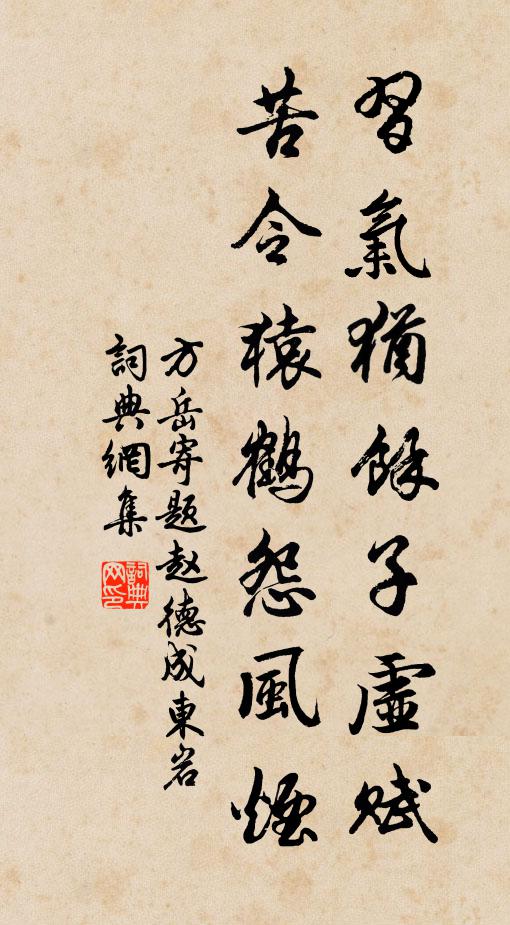 習氣猶餘子虛賦
苦令猿鶴怨風煙
方岳寄题赵德成東岩
詞典網集
詞典网印